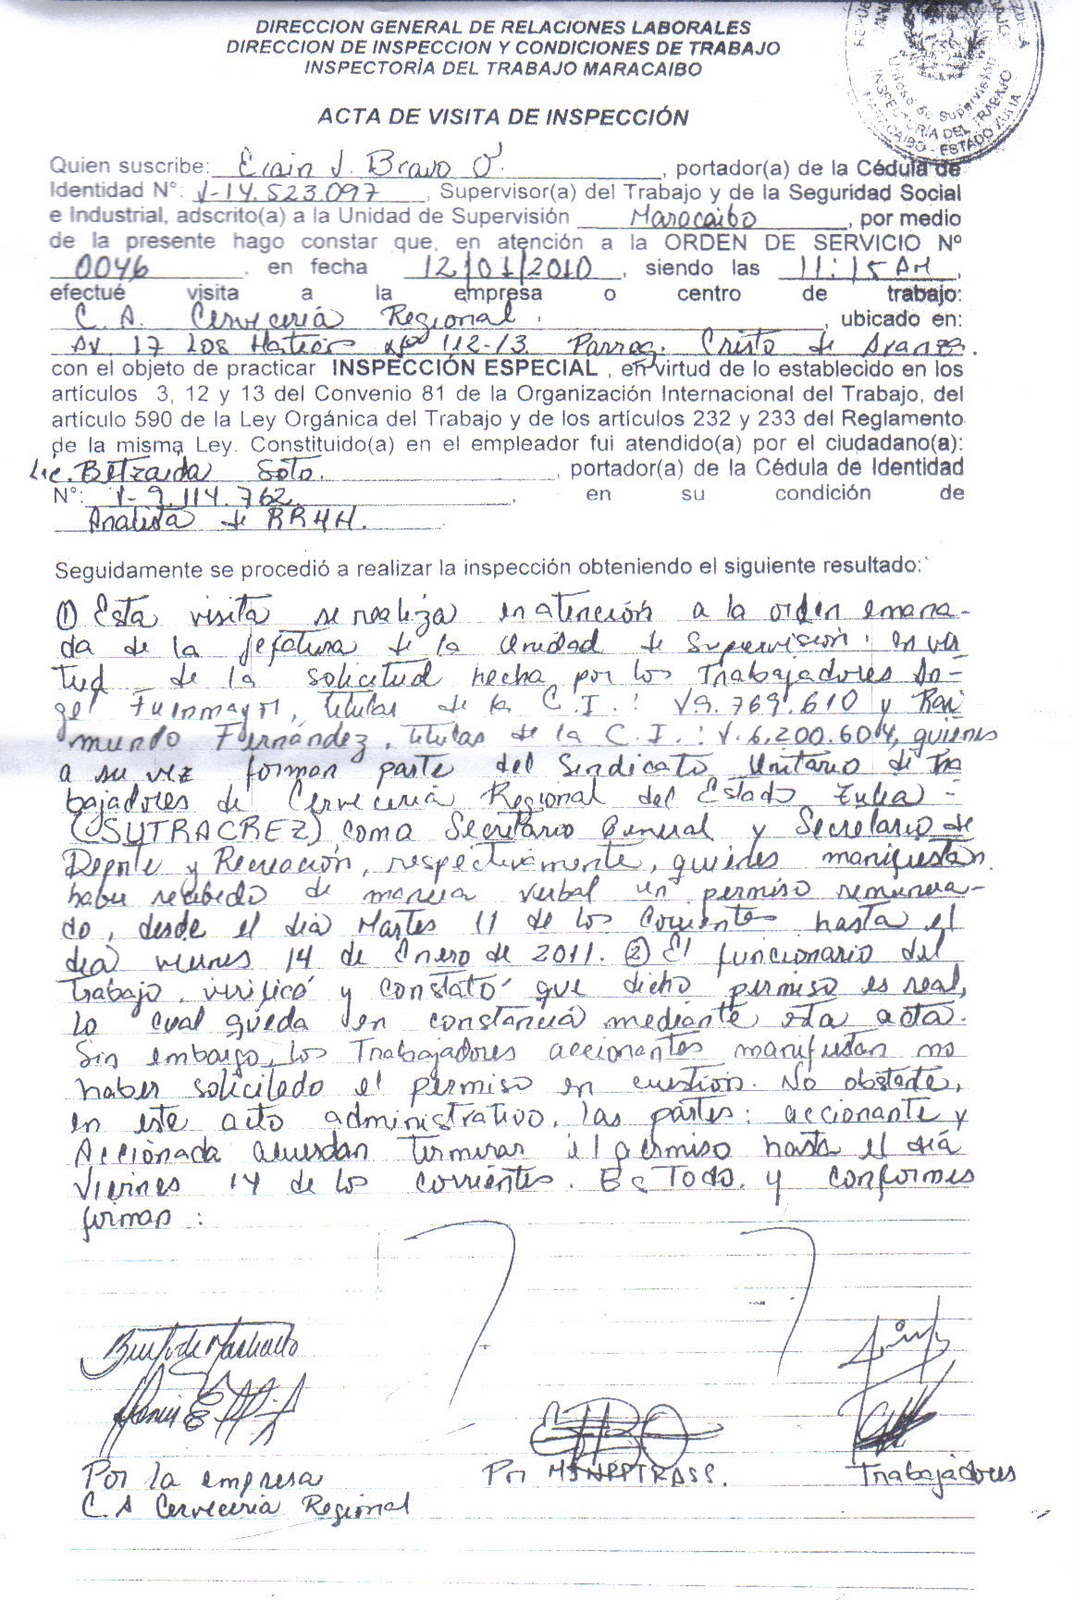 DIRECCION GENERAL DE RELACIONES LABORALES
DIRECCION DE INSPECCION Y CONDICIONES DE TRABAJO
INSPECTORÍA DEL TRABAJO MARACAIBO
Unidad de Supervisión
INSPECTORÍA DEL TRABAJO
MARACAIBO - ESTADO ZULIA
ACTA DE VISITA DE INSPECCIÓN
Quien suscribe: J. Bravo O. , portador(a) de la Cédula de
Identidad N°: V-14.523.097 , Supervisor(a) del Trabajo y de la Seguridad Social
e Industrial, adscrito(a) a la Unidad de Supervisión Maracaibo , por medio
de la presente hago constar que, en atención a la ORDEN DE SERVICIO Nº
0046 . en fecha 12/01/2010 , siendo las 11:15 AM ,
efectué visita a la empresa o centro de trabajo:
C.A. Cervecería Regional. , ubicado en:
Av. 17 Los Haticos Nº 112-13. Parroq. Cristo de Aranza.
con el objeto de practicar INSPECCIÓN ESPECIAL , en virtud de lo establecido en los
artículos 3, 12 y 13 del Convenio 81 de la Organización Internacional del Trabajo, del
artículo 590 de la Ley Orgánica del Trabajo y de los artículos 232 y 233 del Reglamento
de la misma Ley. Constituido(a) en el empleador fui atendido(a) por el ciudadano(a):
Lic. Betzaida Soto. , portador(a) de la Cédula de Identidad
N°: V-9.114.762 , en su condición de
Analista de RRHH.
Seguidamente se procedió a realizar la inspección obteniendo el siguiente resultado:
① Esta visita se realiza en atención a la orden emana-
da de la jefatura de la Unidad de Supervisión. en vir
tud de la solicitud hecha por los Trabajadores An-
gel Fuenmayor, titular de la C.I.: V9.769.610 y Rai
mundo Fernández, titular de la C.I.: V.6.200.604, quienes
a su vez forman parte del Sindicato Unitario de Tra
bajadores de Cervecería Regional del Estado Zulia -
(SUTRACREZ) como Secretario General y Secretario de
Deporte y Recreación, respectivamente, quienes manifiestan
haber recibido de manera verbal un permiso remunera-
do, desde el día Martes 11 de los corrientes hasta el
día viernes 14 de Enero de 2011. ② El funcionario del
Trabajo, verificó y constató que dicho permiso es real,
lo cual queda en constancia mediante esta acta.
Sin embargo, los Trabajadores accionantes manifiestan no
haber solicitado el permiso en cuestión. No obstante,
en este acto administrativo, las partes: accionante y
Accionada acuerdan terminar el permiso hasta el día
Viernes 14 de los corrientes. Es Todo, y conformes
firman :
Por la empresa
C.A Cervecería Regional
Por MINPPTRASS.
Trabajadores